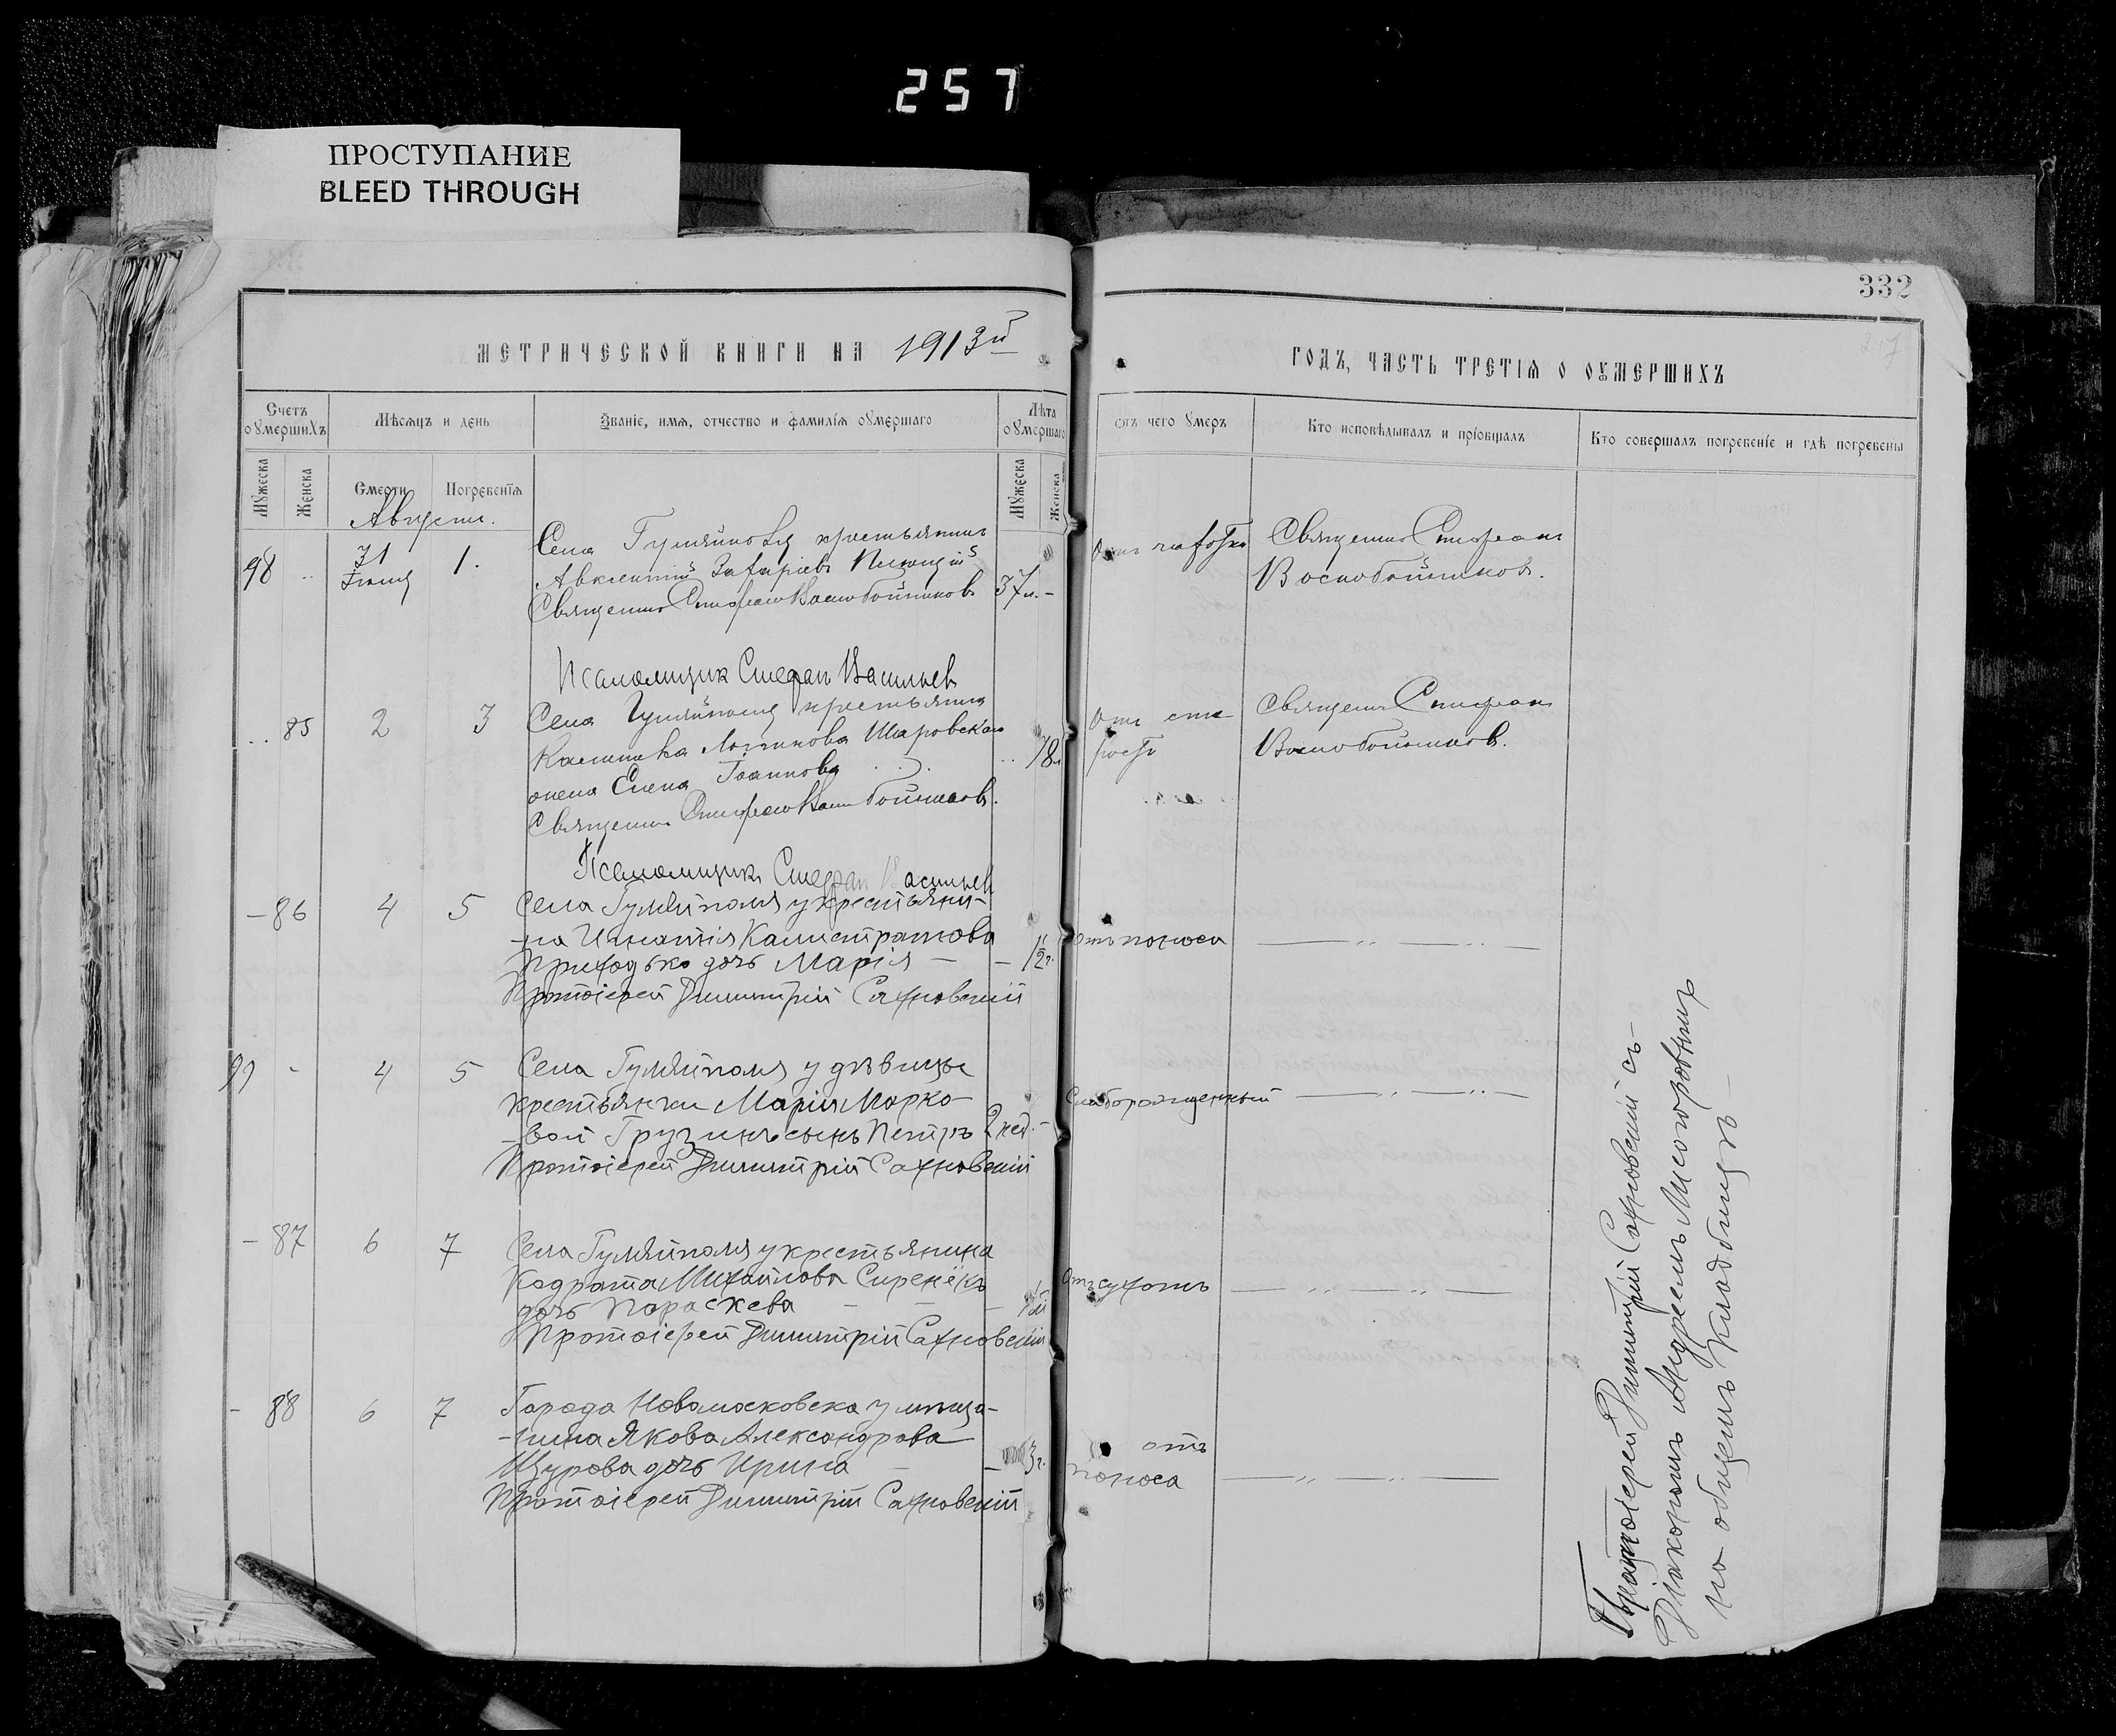 257
ПРОСТУПАНИЕ
BLEED THROUGH
332
217
МЕТРИЧЕСКОЙ КНИГИ НА 1913й
ГОДЪ, ЧАСТЬ ТРЕТІѦ О ОУМЕРШИХЪ
Счетъ оумершихъ
Мѣсяцъ и день
Званіе, имѧ, отчество и фамиліѧ оумершаго
Лѣта оумершаго
отъ чего умеръ
Кто исповѣдывалъ и пріобщалъ
Кто совершалъ погребеніе и гдѣ погребены
Мужеска
Женска
Смерти
Погребеніѧ
Мужеска
Женска
Августъ.
98 .. 31 Іюля 1.
Села Гуляйполя крестьянинъ
Авксентій Захаріевъ
Священникъ Стефанъ Воскобойниковъ
37 л. -
отъ чахотки
Священникъ Стефанъ
Воскобойниковъ.
Псаломщик Стефан Васильев
.. 85 2 3
Села Гуляйполя крестьянина
Каленика Логинова Шаровскаго
жена Елена Іоаннова
Священникъ Стефанъ Воскобойниковъ.
.. 78 л
отъ ста-
рости
Священникъ Стефанъ
Воскобойниковъ.
Псаломщикъ Стефан Васильев
- 86 4 5
Села Гуляйполя у крестьяни-
-на Игнатія Калистратова
Приходько дочь Марія -
Протоіерей Димитрій Сахновскій
- 1/2 г.
отъ поноса
99 - 4 5
Села Гуляйполя у дѣвицы
крестьянки Маріи Марко-
-вой Грузинъ сынъ Петръ
Протоіерей Димитрій Сахновскій
2 нед. -
Слаборожденный
- 87 6 7
Села Гуляйполя у крестьянина
Кодрата Михайлова Сиренёкъ
дочь Параскева - - -
Протоіерей Димитрій Сахновскій
отъ сухотъ
- 88 6 7
Города Новомосковска у мѣща-
-нина Якова Александрова
Щурова дочь Ирина -
Протоіерей Димитрій Сахновскій
- 3 г.
отъ
поноса
Протоіерей Димитрій Сахновскій съ
Діакономъ Андреемъ
на общемъ кладбищѣ